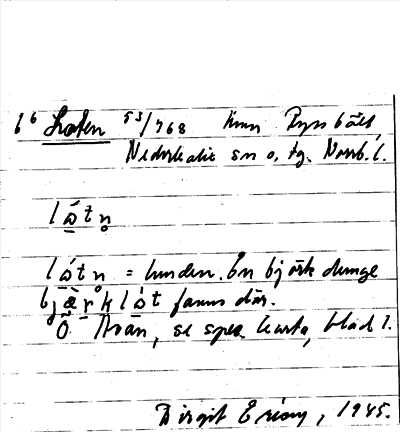 b6 Laten 53/768 hmn Rysbält,
Nederkalix sn o. tg. Norrb. l.
låtn̥
lǻtn̥ = lunden. En björkdunge
bjærklåt fanns där.
Ö Åvan, se spec. karta, blad 1.
Birgit Ericsy, 1945.